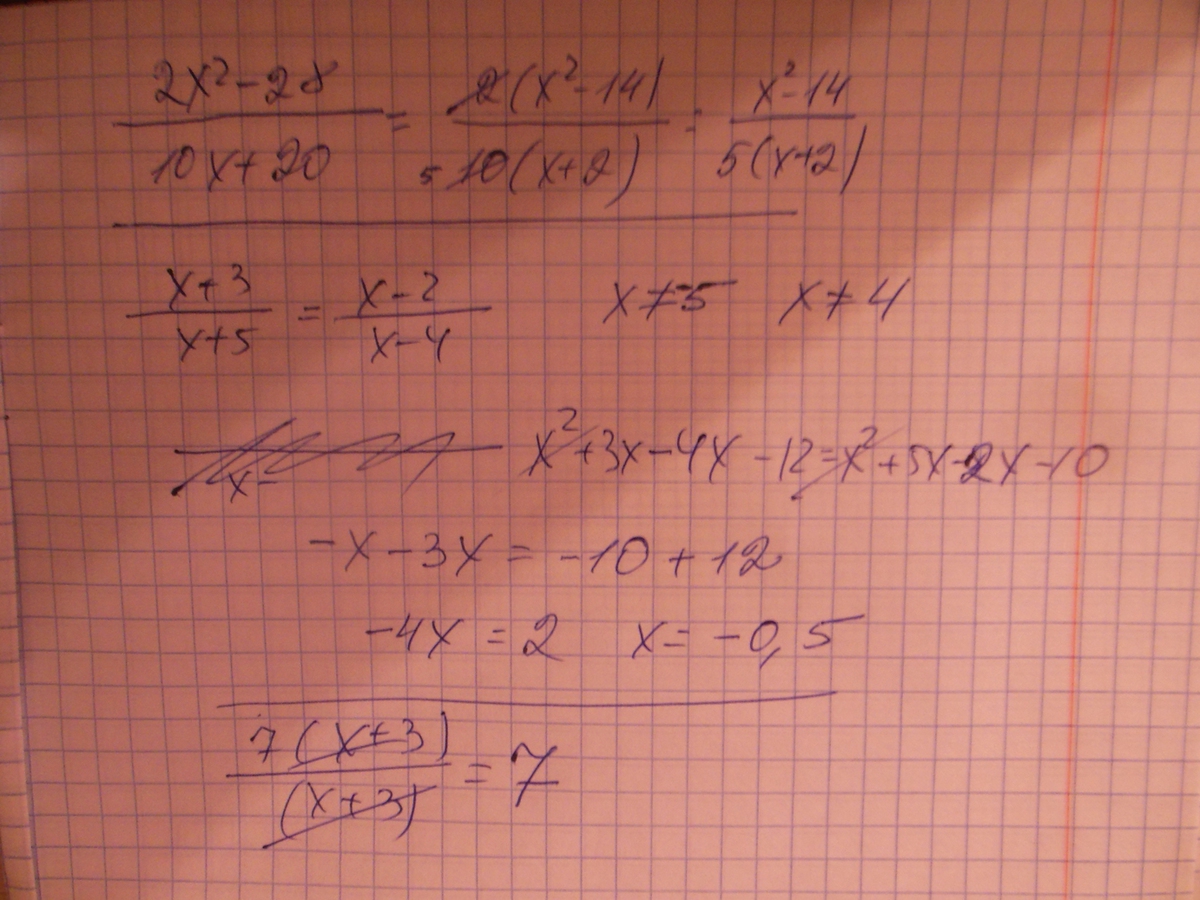 (2x²-28)/(10x+20) = 2(x²-14)/5 10(x+2) = (x²-14)/(5(x+2))
(x+3)/(x+5) = (x-2)/(x-4) x≠-5 x≠4
x= x²+3x-4x-12=x²+5x-2x-10
-x-3x=-10+12
-4x=2 x=-0,5
7(x+3)/(x+3)=7